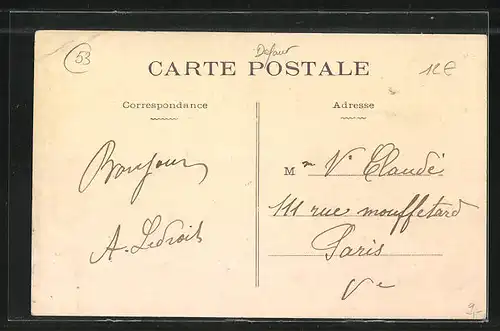 53
Defaut
CARTE POSTALE
12€
Correspondance
Adresse
Bonjour
A. Ledroit
Mme Ve Claudé
111 rue mouffetard
Paris
Ve